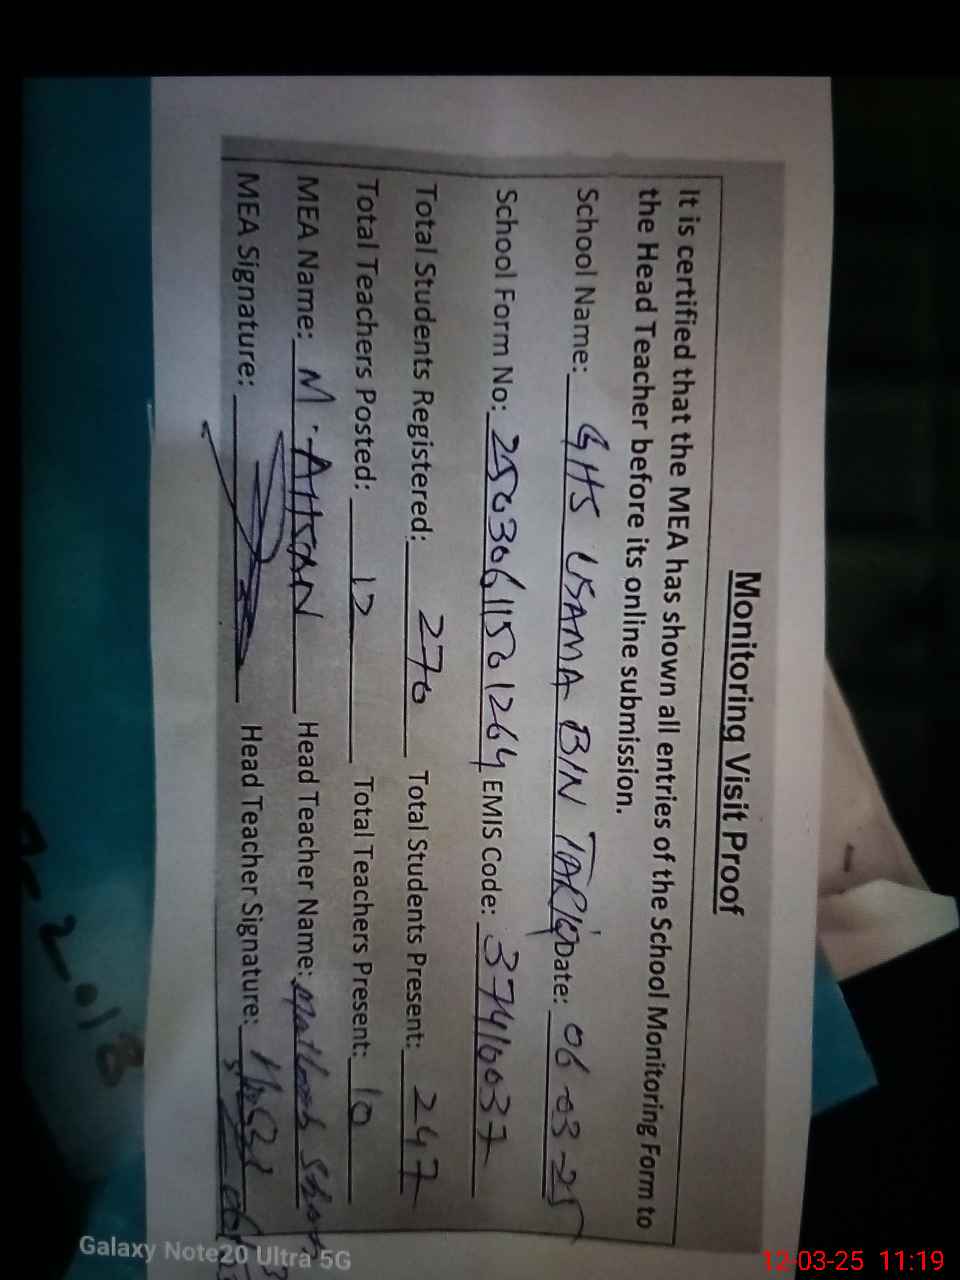 Monitoring Visit Proof
It is certified that the MEA has shown all entries of the School Monitoring Form to
the Head Teacher before its online submission.
School Name: GHS USAMA BIN TARIQ Date: 06-03-25
School Form No: 25030611501264 EMIS Code: 37410037
Total Students Registered: 270 Total Students Present: 247
Total Teachers Posted: 12 Total Teachers Present: 10
MEA Name: M. AHSAN Head Teacher Name:
MEA Signature: Head Teacher Signature:
2018
Galaxy Note20 Ultra 5G
12-03-25 11:19